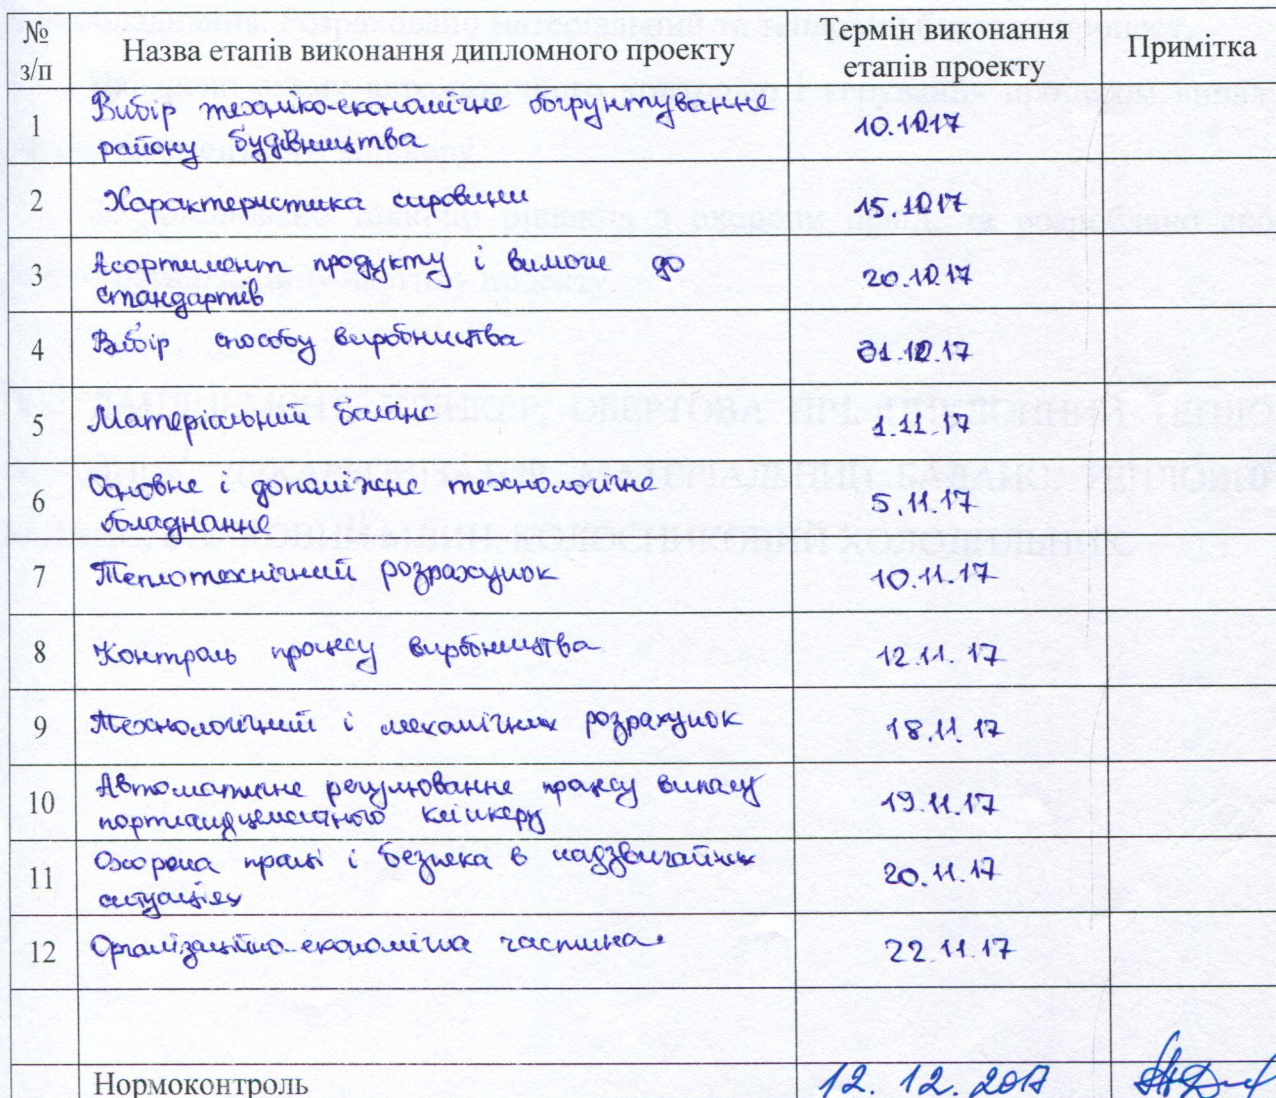 № з/п
Назва етапів виконання дипломного проекту
Термін виконання етапів проекту
Примітка
1
Вибір техніко-економічне обґрунтування
району будівництва
10.10.17
2
Характеристика сировини
15.10.17
3
Асортимент продукту і вимоги до
стандартів
20.10.17
4
Вибір способу виробництва
31.10.17
5
Матеріальний баланс
1.11.17
6
Основне і допоміжне технологічне
обладнання
5.11.17
7
Теплотехнічний розрахунок
10.11.17
8
Контроль процесу виробництва
12.11.17
9
Технологічний і механічних розрахунок
18.11.17
10
Автоматичне регулювання процесу випалу
портландцементного клінкеру
19.11.17
11
Охорона праці і безпека в надзвичайних
ситуаціях
20.11.17
12
Організаційно-економічна частина
22.11.17
Нормоконтроль
12.12.2017